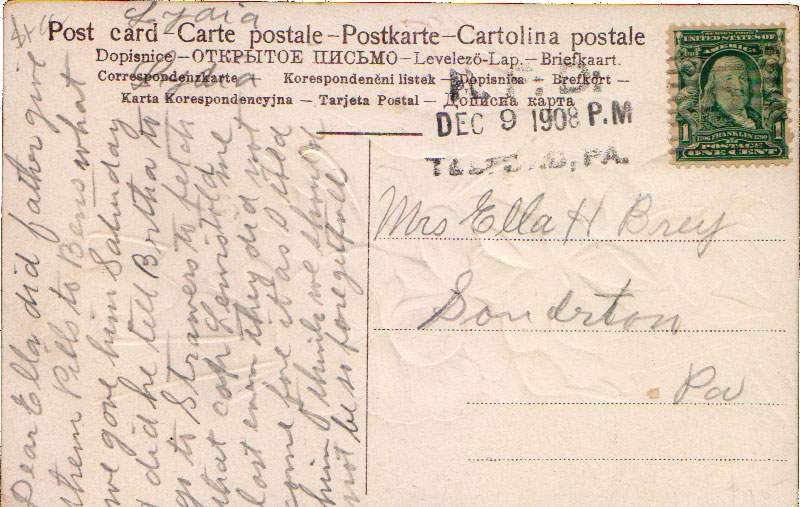 Post card – Carte postale – Postkarte – Cartolina postale
Dopisnice – ОТКРЫТОЕ ПИСЬМО – Levelezö-Lap. – Briefkaart.
Correspondenzkarte – Korespondenční listek – Dopisnica – Brefkort –
Karta Korespondencyjna – Tarjeta Postal – Дописна карта
R.F.D.
DEC 9 1908 P.M
TELFORD, PA.
UNITED STATES OF
AMERICA
1706 FRANKLIN 1790
POSTAGE
1 ONE CENT 1
Mrs Ella H Brey
Souderton
Pa
Dear Ella did father give
them Pills to Bens what
we gave him Saturday
& did he tell Bertha to
go to Strawers to fetch
that cop Lewis told me
last eve they did not
come fore it as I told
him I think we should
not be so foregetfull
Lydia